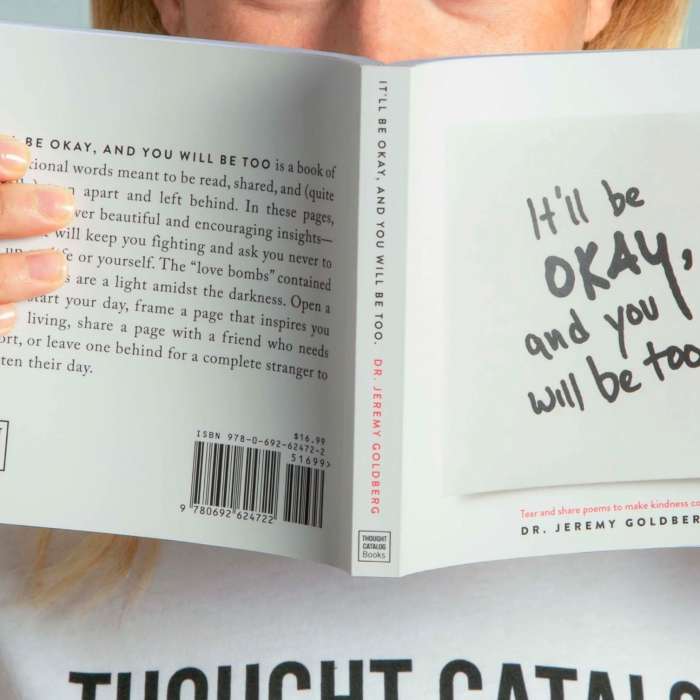 BE OKAY, AND YOU WILL BE TOO is a book of
words meant to be read, shared, and (quite
apart and left behind. In these pages,
beautiful and encouraging insights—
will keep you fighting and ask you never to
or yourself. The “love bombs” contained
are a light amidst the darkness. Open a
your day, frame a page that inspires you
living, share a page with a friend who needs
or leave one behind for a complete stranger to
their day.
$16.99
ISBN 978-0-692-62472-2
51699>
9 780692 624722
IT'LL BE OKAY, AND YOU WILL BE TOO. DR. JEREMY GOLDBERG
THOUGHT
CATALOG
Books
It'll be
OKAY,
and you
will be too
Tear and share poems to make kindness
DR. JEREMY
THOUGHT